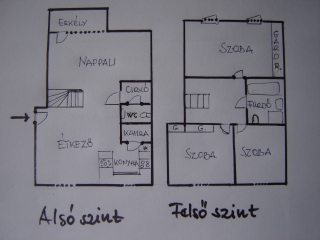 ERKÉLY
NAPPALI
CIRKÓ
WC
KAMRA
ÉTKEZŐ
KONYHA
Alsó szint
SZOBA
GARDR.
FÜRDŐ
G.
G.
SZOBA
SZOBA
Felső szint